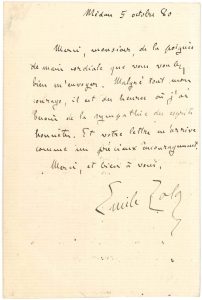 Médan 5 octobre 80
Merci, monsieur, de la poignée
de main cordiale que vous voulez
bien m'envoyer. Malgré tout mon
courage, il est des heures où j'ai
besoin de la sympathie des esprits
honnêtes. Et votre lettre m'arrive
comme un précieux encouragement.
Merci, et bien à vous,
Emile Zola